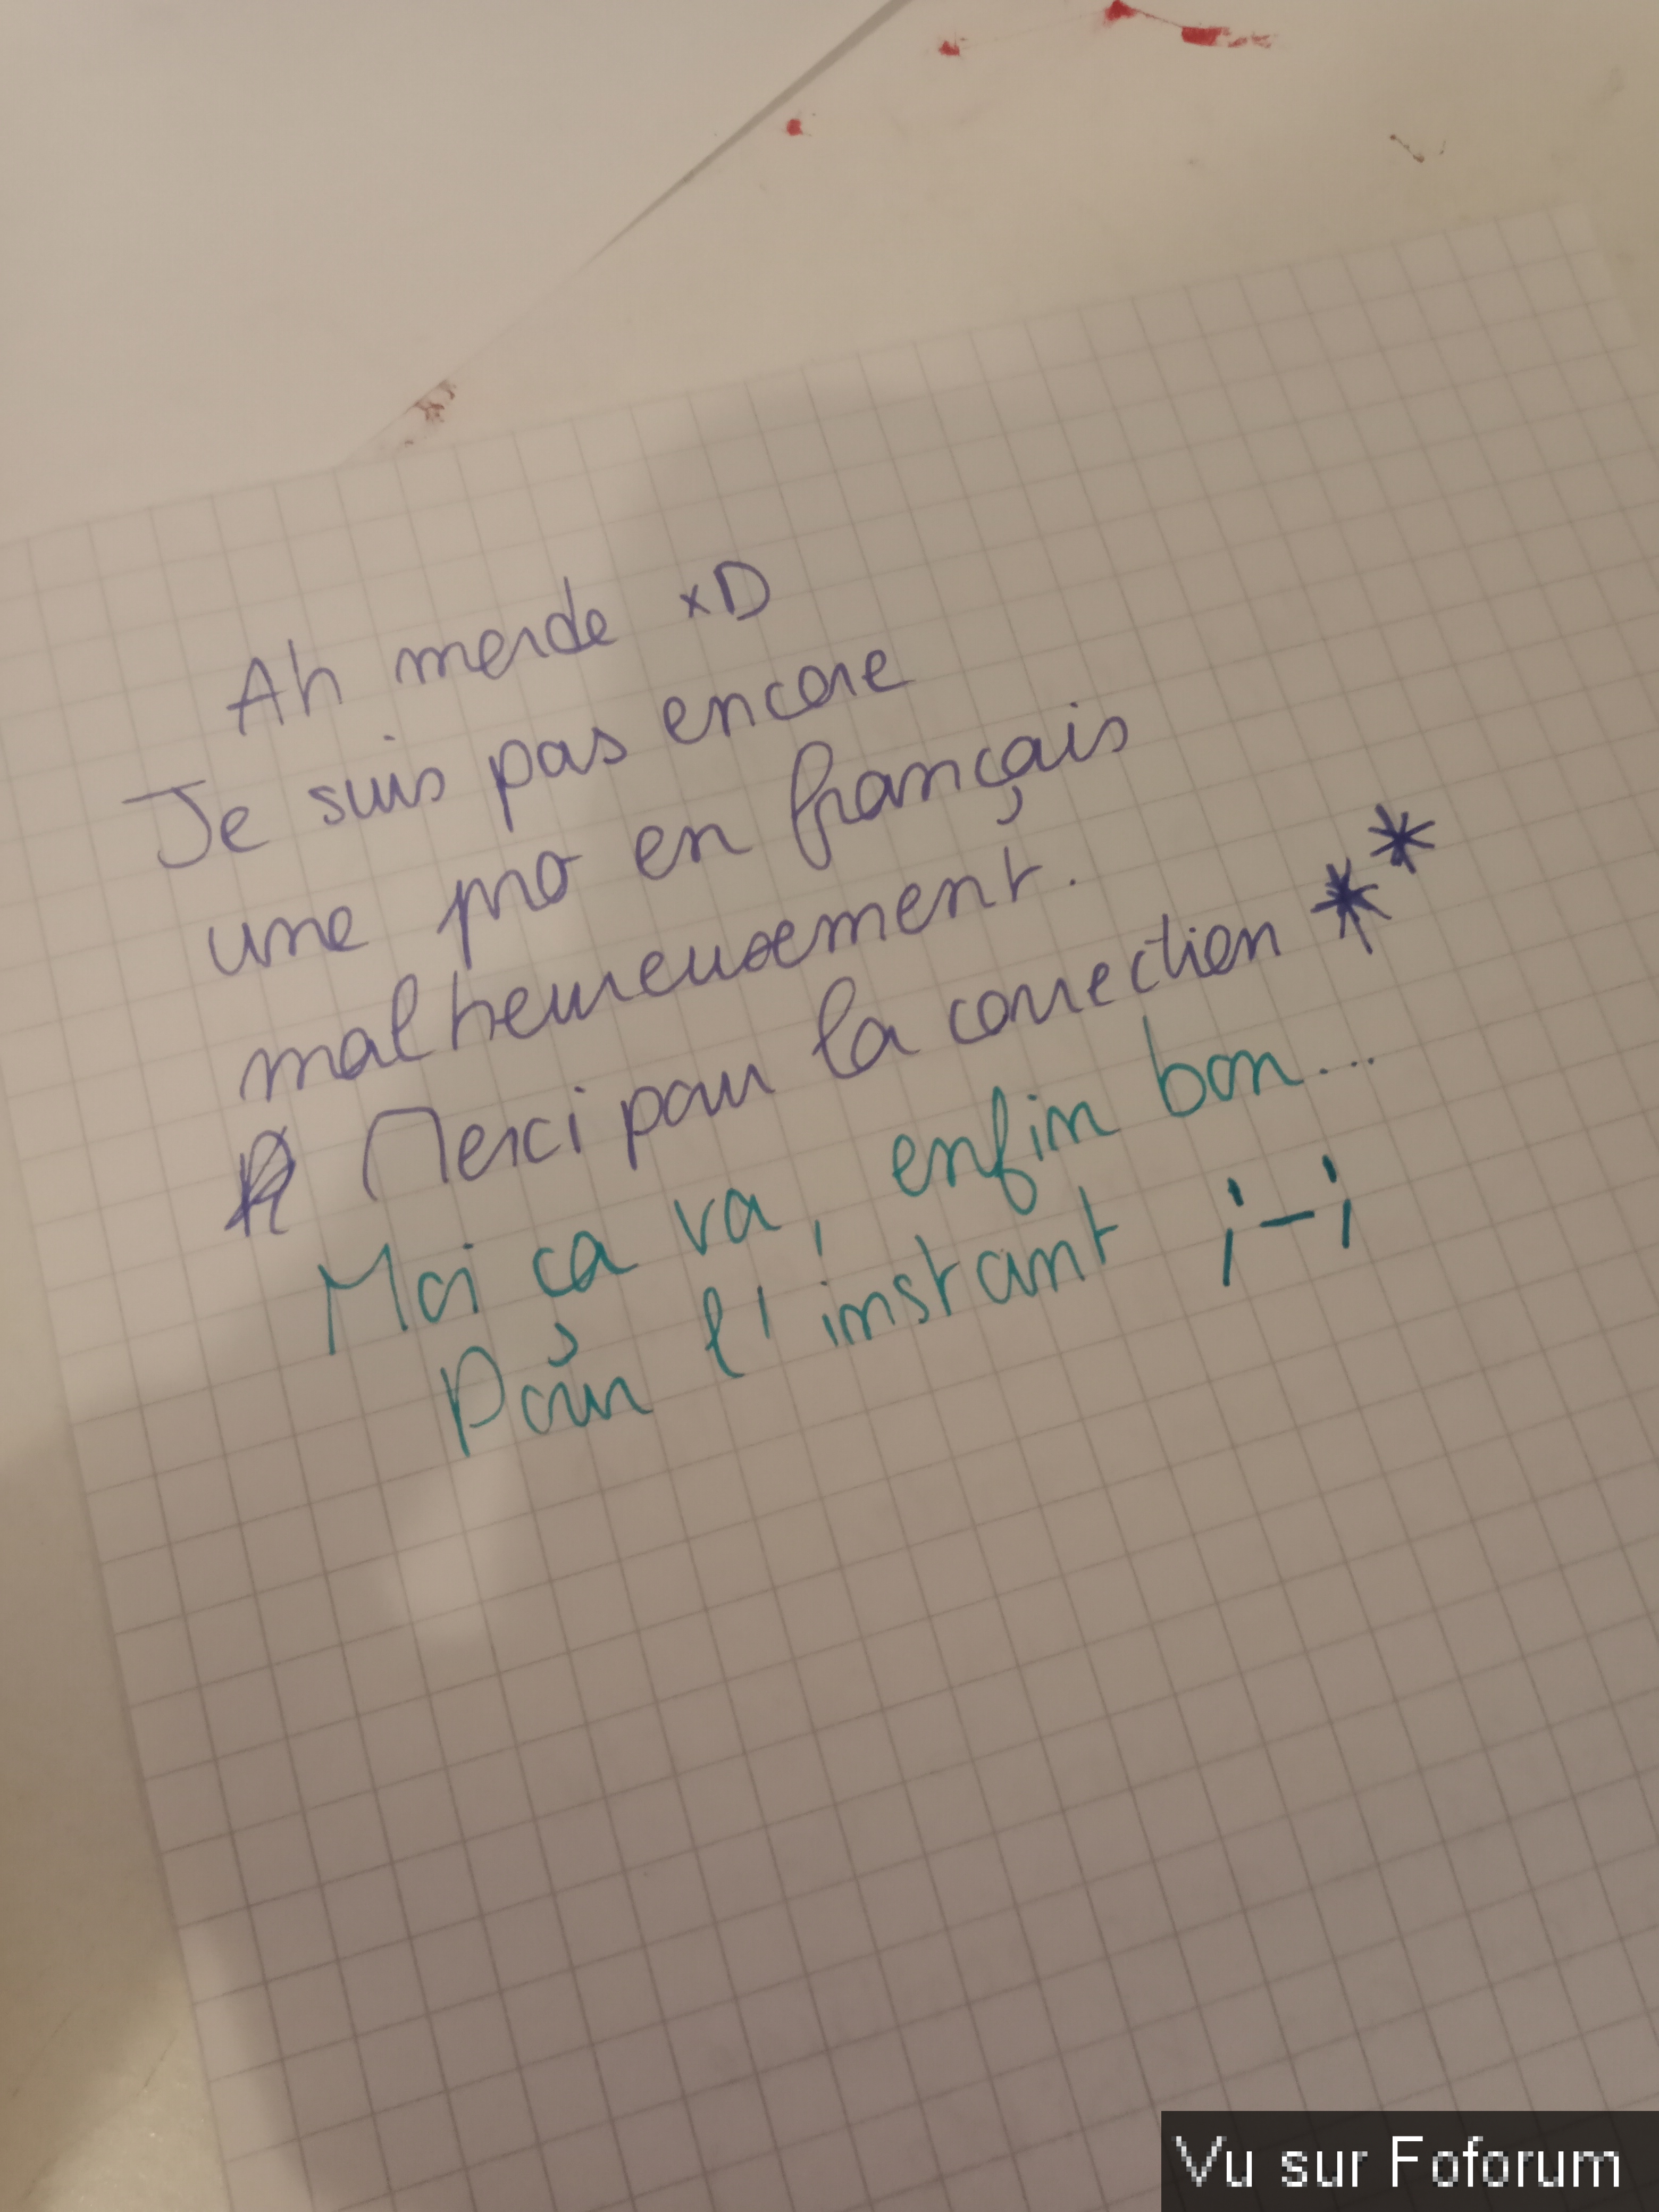 Ah merde xD
Je suis pas encore
une pro en français
malheureusement.
Merci pour la correction **
Moi ça va, enfin bon...
Pour l'instant ;-;
Vu sur Foforum